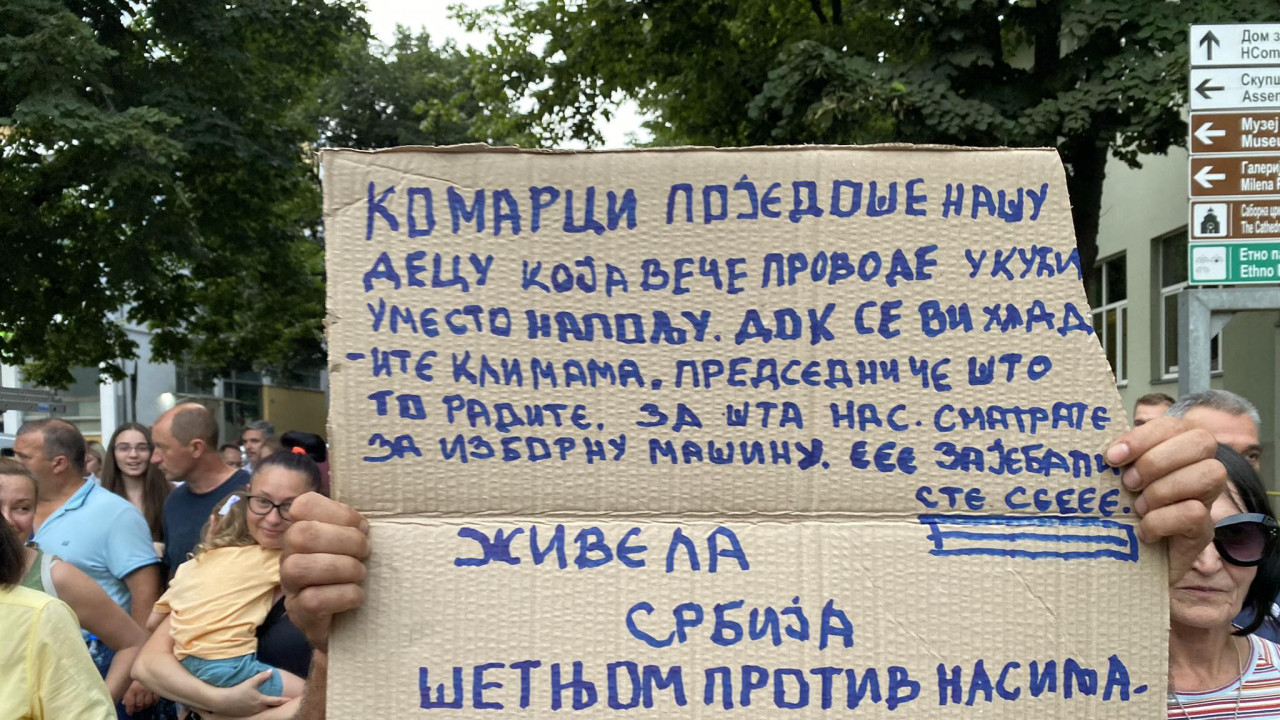 КОМАРЦИ ПОЈЕДОШЕ НАШУ
ДЕЦУ КОЈА ВЕЧЕ ПРОВОДЕ У КУЋИ
УМЕСТО НАПОЉУ. ДОК СЕ ВИ ХЛАД
-ИТЕ КЛИМАМА. ПРЕДСЕДНИЧЕ ШТО
ТО РАДИТЕ. ЗА ШТА НАС. СМАТРАТЕ
ЗА ИЗБОРНУ МАШИНУ. ЕЕЕ ЗАЈЕБАЛИ
СТЕ СЕЕЕЕ.
ЖИВЕЛА
СРБИЈА
ШЕТЊОМ ПРОТИВ НАСИЉА.
Дом з
HCom
Скупш
Assem
Музеј
Museu
Галериј
Milena P
Саборна
The Cathed
Етно па
Ethno